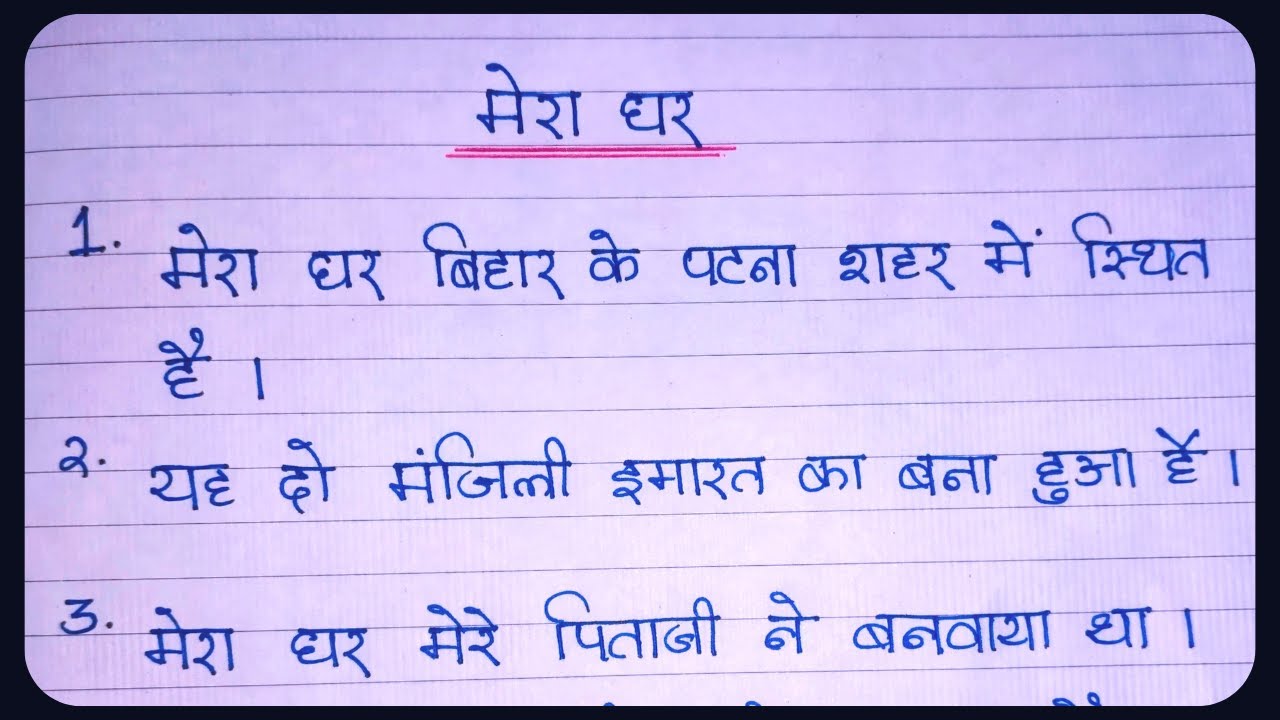 मेरा घर
1. मेरा घर बिहार के पटना शहर में स्थित
है ।
२. यह दो मंजिली इमारत का बना हुआ है ।
3. मेरा घर मेरे पिताजी ने बनवाया था ।